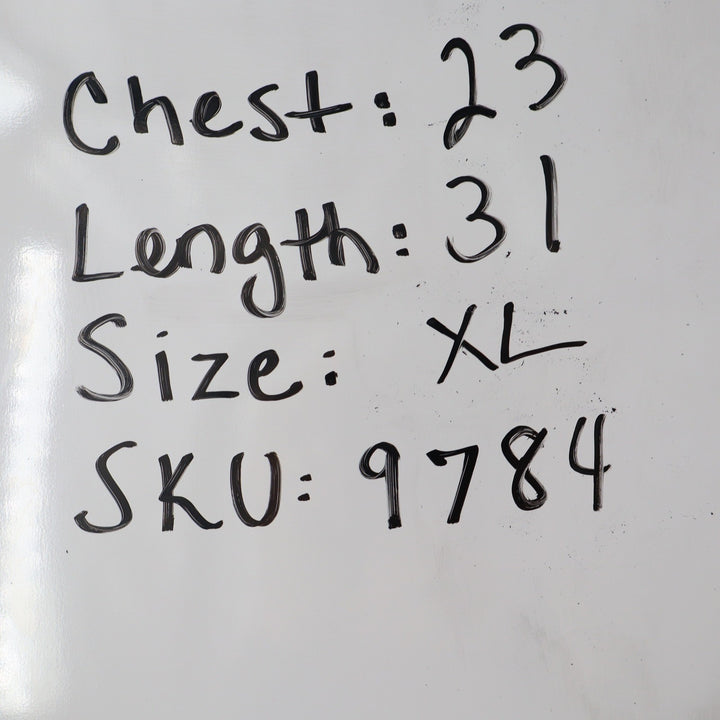 Chest: 23
Length: 31
Size: XL
SKU: 9784